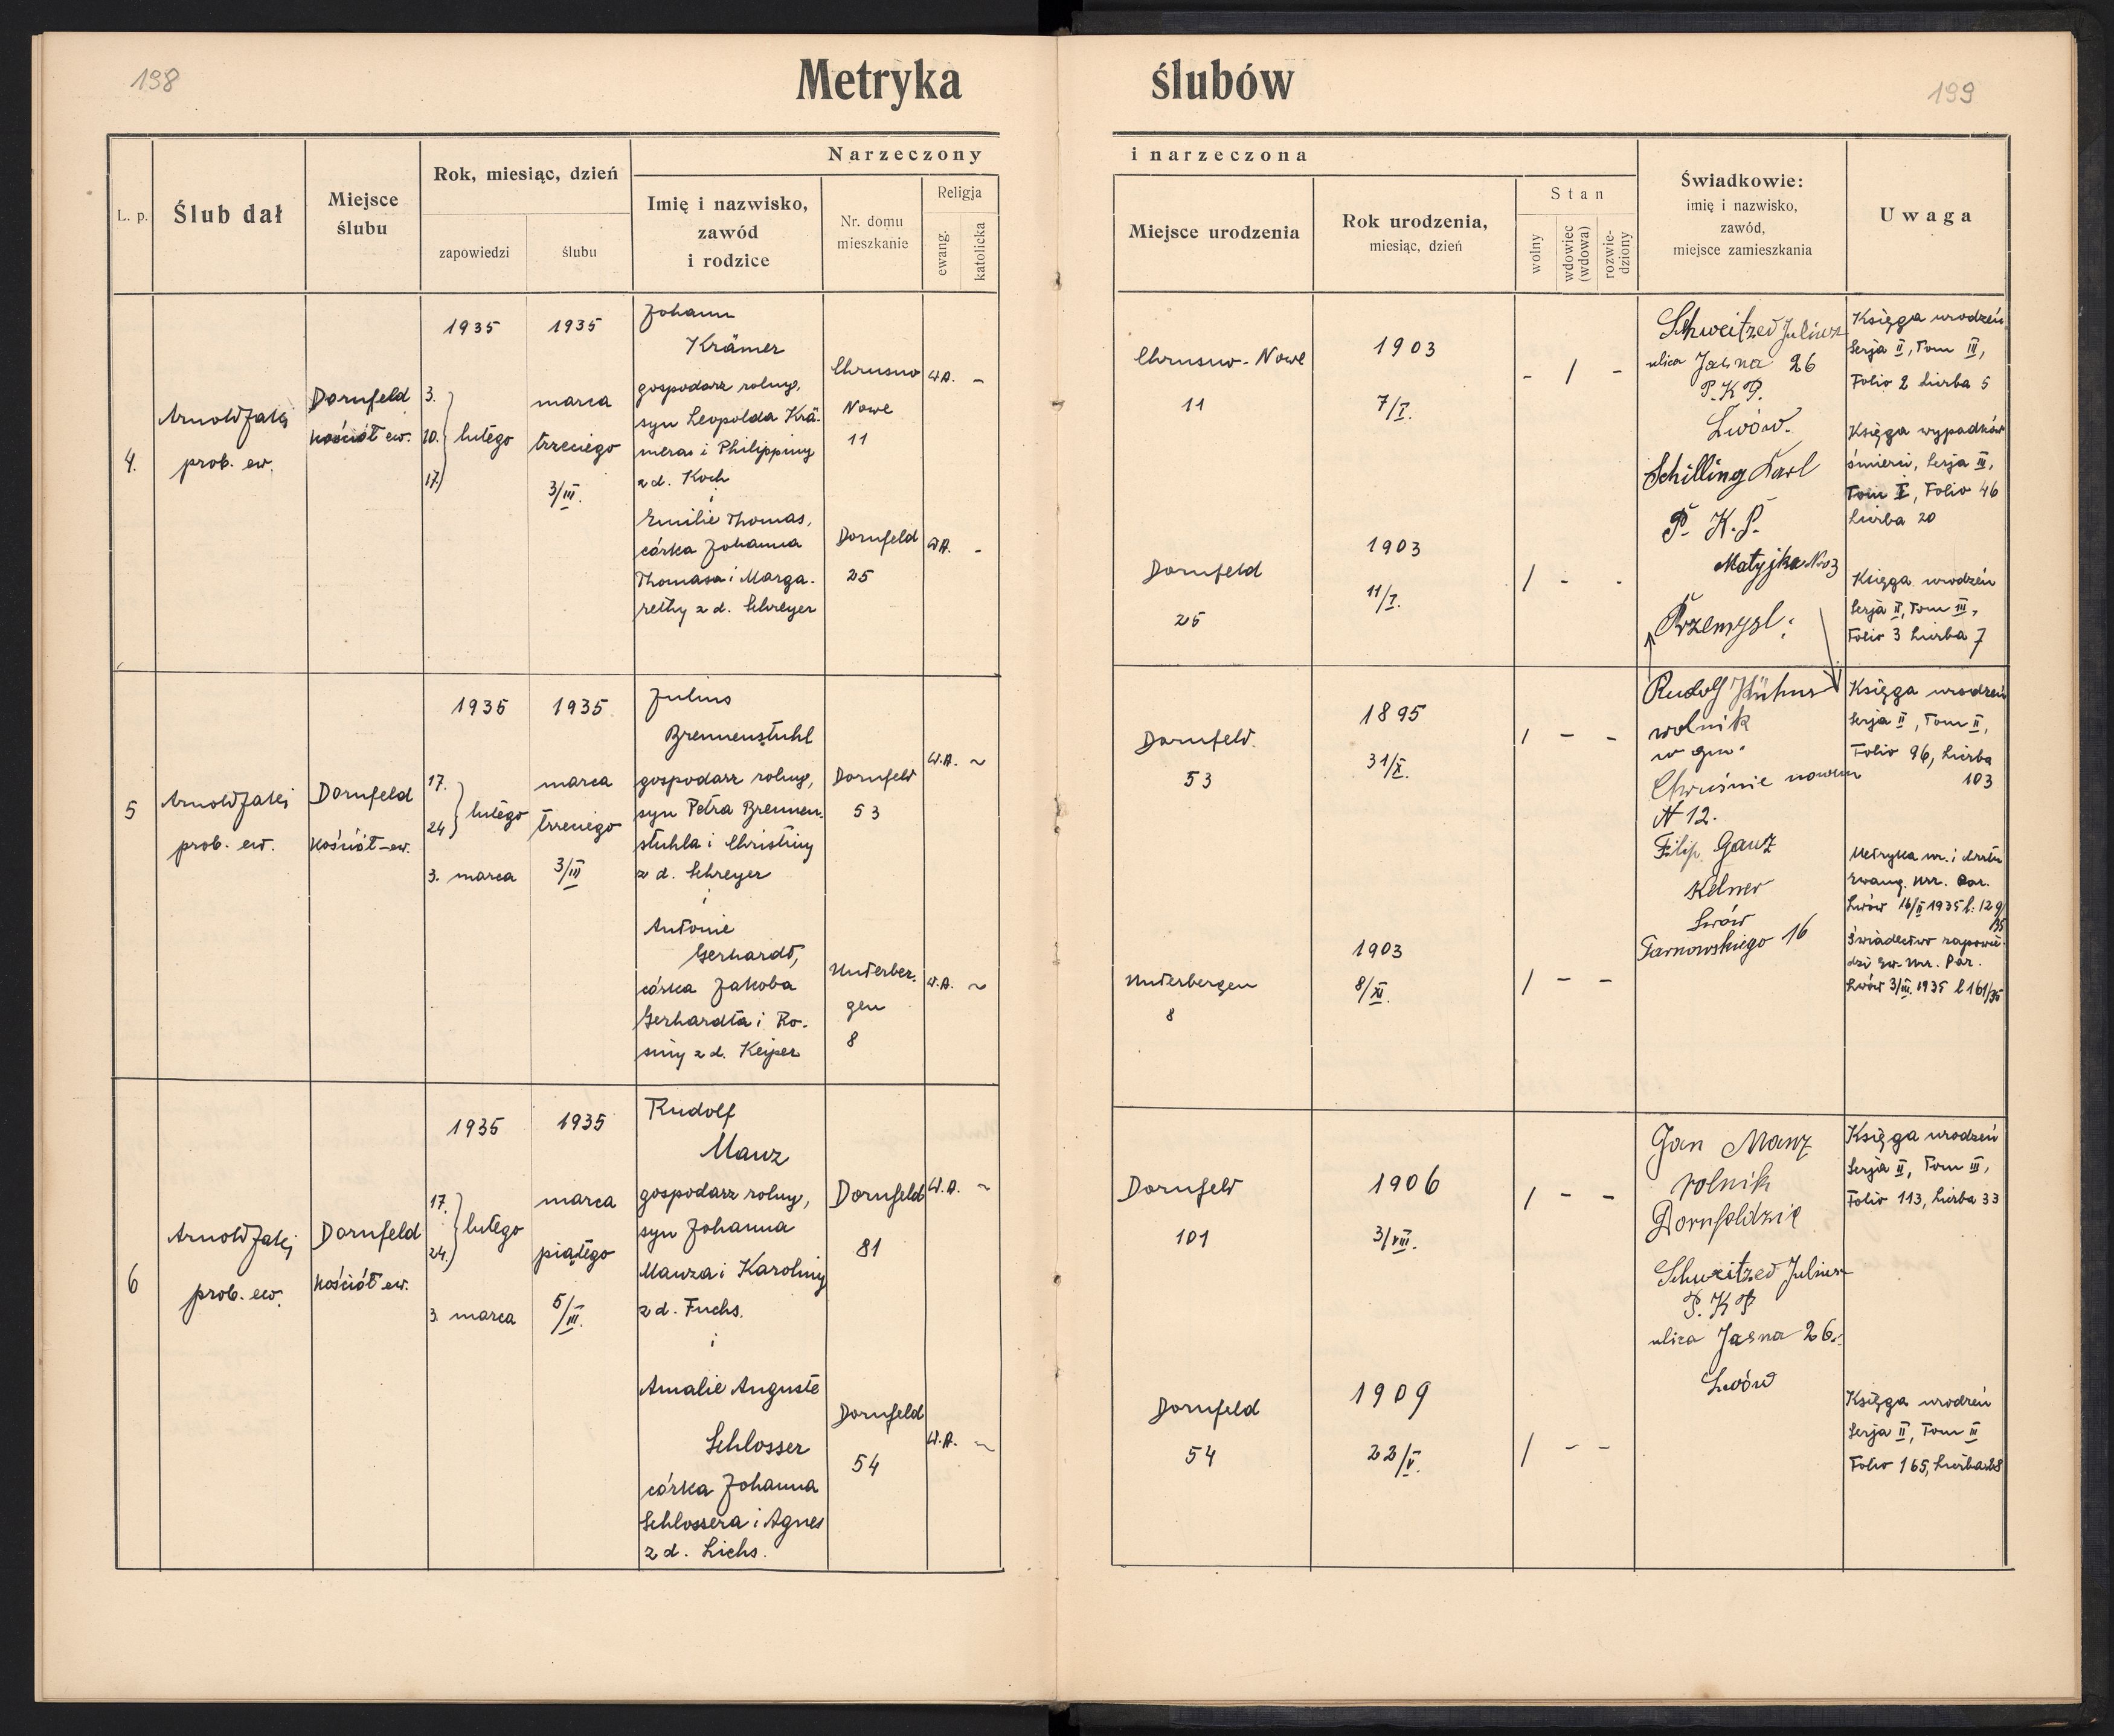 198
Metryka
ślubów
199
L. p.
Ślub dał
Miejsce
ślubu
Rok, miesiąc, dzień
zapowiedzi
ślubu
Narzeczony
Imię i nazwisko,
zawód
i rodzice
Nr. domu
mieszkanie
Religja
ewang.
katolicka
i narzeczona
Miejsce urodzenia
Rok urodzenia,
miesiąc, dzień
Stan
wolny
wdowiec
(wdowa)
rozwie-
dziony
Świadkowie:
imię i nazwisko,
zawód,
miejsce zamieszkania
Uwaga
4.
Arnold Jaki
prob. ew.
Dornfeld
kościół ew.
1935
3.
10. lutego
17.
1935
marca
trzeciego
3/III.
Johann
Krämer
gospodarz rolny,
syn Leopolda Krä-
mera i Philippiny
z d. Koch
i
Emilie Thomas,
córka Johanna
Thomasa i Marga-
rethy z d. Schreyer
Chrusno
Nowe
11
Dornfeld
25
W.A. -
W.A. -
Chrusno-Nowe
11
Dornfeld
25
1903
7/I.
1903
11/I.
- / -
/ - -
Schweitzer Juliusz
ulica Jasna 26
P.K.P.
Lwów.
Schilling Karl
P. K. P.
Matyjka No 3
Przemysl:
Księga urodzeń
Serja II, Tom III,
Folio 2 Liczba 5
Księga wypadków
śmierci, Serja III,
Tom I, Folio 46
Liczba 20
Księga urodzeń
Serja II, Tom III,
Folio 3 Liczba 7
5
Arnold Jaki
prob. ew.
Dornfeld
kościół-ew.
1935
17.
24 lutego
3. marca
1935
marca
trzeciego
3/III
Julius
Brennenstuhl
gospodarz rolny,
syn Petra Brennen-
stuhla i Christiny
z d. Schreyer
i
Antonie
Gerhardt,
córka Jakoba
Gerhardta i Ro-
siny z d. Keiper
Dornfeld
53
Unterber-
gen
8
W.A. ~
W.A. ~
Dornfeld.
53
Unterbergen
8
1895
31/X.
1903
8/XI.
/ - -
/ - -
Rudolf Kühner
wolnik
w gm.
Chruśnie nowem
N 12.
Filip Ganz
Kelner
Lwów
Tarnowskiego 16
Księga urodzeń
Serja II, Tom II,
Folio 96, Liczba
103
Metryka ur. i chrztu
Ewang. urz. Par.
Lwów 16/II 1935 l: 129/
35
Świadectwo zapowie-
dzi Ew. urz. Par.
Lwów 3/III. 1935 l 161/35
6
Arnold Jaki
prob. ew.
Dornfeld
kościół ew.
1935
17.
24. lutego
3. marca
1935
marca
piątego
5/III.
Rudolf
Manz
gospodarz rolny,
syn Johanna
Manza i Karoliny
z d. Fuchs.
i
Amalie Auguste
Schlosser
córka Johanna
Schlossera i Agnes
z d. Lichs.
Dornfeld
81
Dornfeld
54
W.A. ~
W.A. ~
Dornfeld
101
Dornfeld
54
1906
3/VIII.
1909
22/V.
/ - -
/ - -
Jan Manz
rolnik
Dornfeldzie
Schweitzer Juliusz
P.K.P
ulica Jasna 26.
Lwów
Księga urodzeń
Serja II, Tom III,
Folio 113, Liczba 33
Księga urodzeń
Serja II, Tom III
Folio 165, Liczba 28